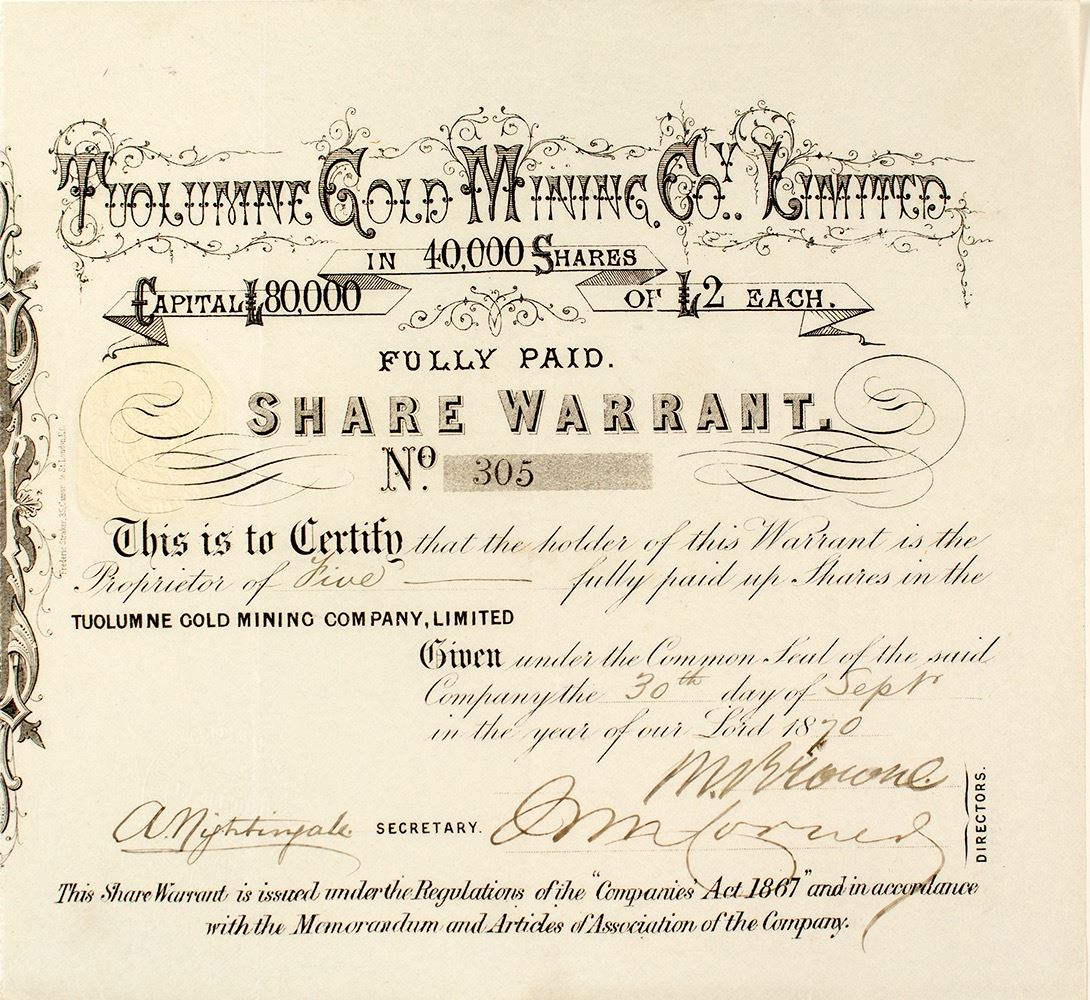 TUOLUMNE GOLD MINING COY. LIMITED
IN 40,000 SHARES
CAPITAL £80,000 OF £2 EACH.
FULLY PAID.
SHARE WARRANT.
No. 305
This is to Certify that the holder of this Warrant is the
Proprietor of Five fully paid up Shares in the
TUOLUMNE GOLD MINING COMPANY, LIMITED
Given under the Common Seal of the said
Company the 30th day of Septr
in the year of our Lord 1870
M. Browne
A. Nightingale SECRETARY.
DIRECTORS.
This Share Warrant is issued under the Regulations of the "Companies Act 1867" and in accordance
with the Memorandum and Articles of Association of the Company.